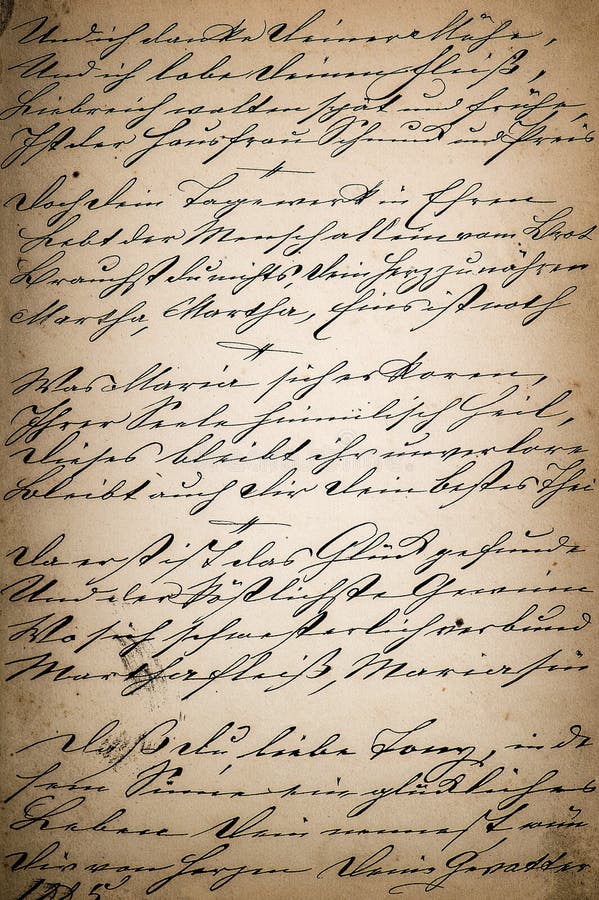 Und ich danke Deiner Mühe,
Und ich lobe Deinen Fleiß,
Liebreich walten spät und frühe,
Ist der Hausfrau Schmuck und Preis
Doch Dein Tagewerk in Ehren
Lebt der Mensch allein vom Brot
Brauchst du nichts, Dein Herz zu nähren
Martha, Martha, Eins ist noth
Was Maria sich erkoren,
Ihrer Seele himmlisch Heil,
Dieses bleibt ihr unverlore
Bleibt auch Dir Dein bestes Thei
Da erst ist das Glück gefunde
Und der köstlichste Gewinn
Wo sich schwesterlich verbund
Martha Fleiß, Maria sin
Daß Du, liebe Tony, in de
sem Sinne ein glückliches
Leben Dein nennest,
Dir von Herzen Deine Gevatter
1885